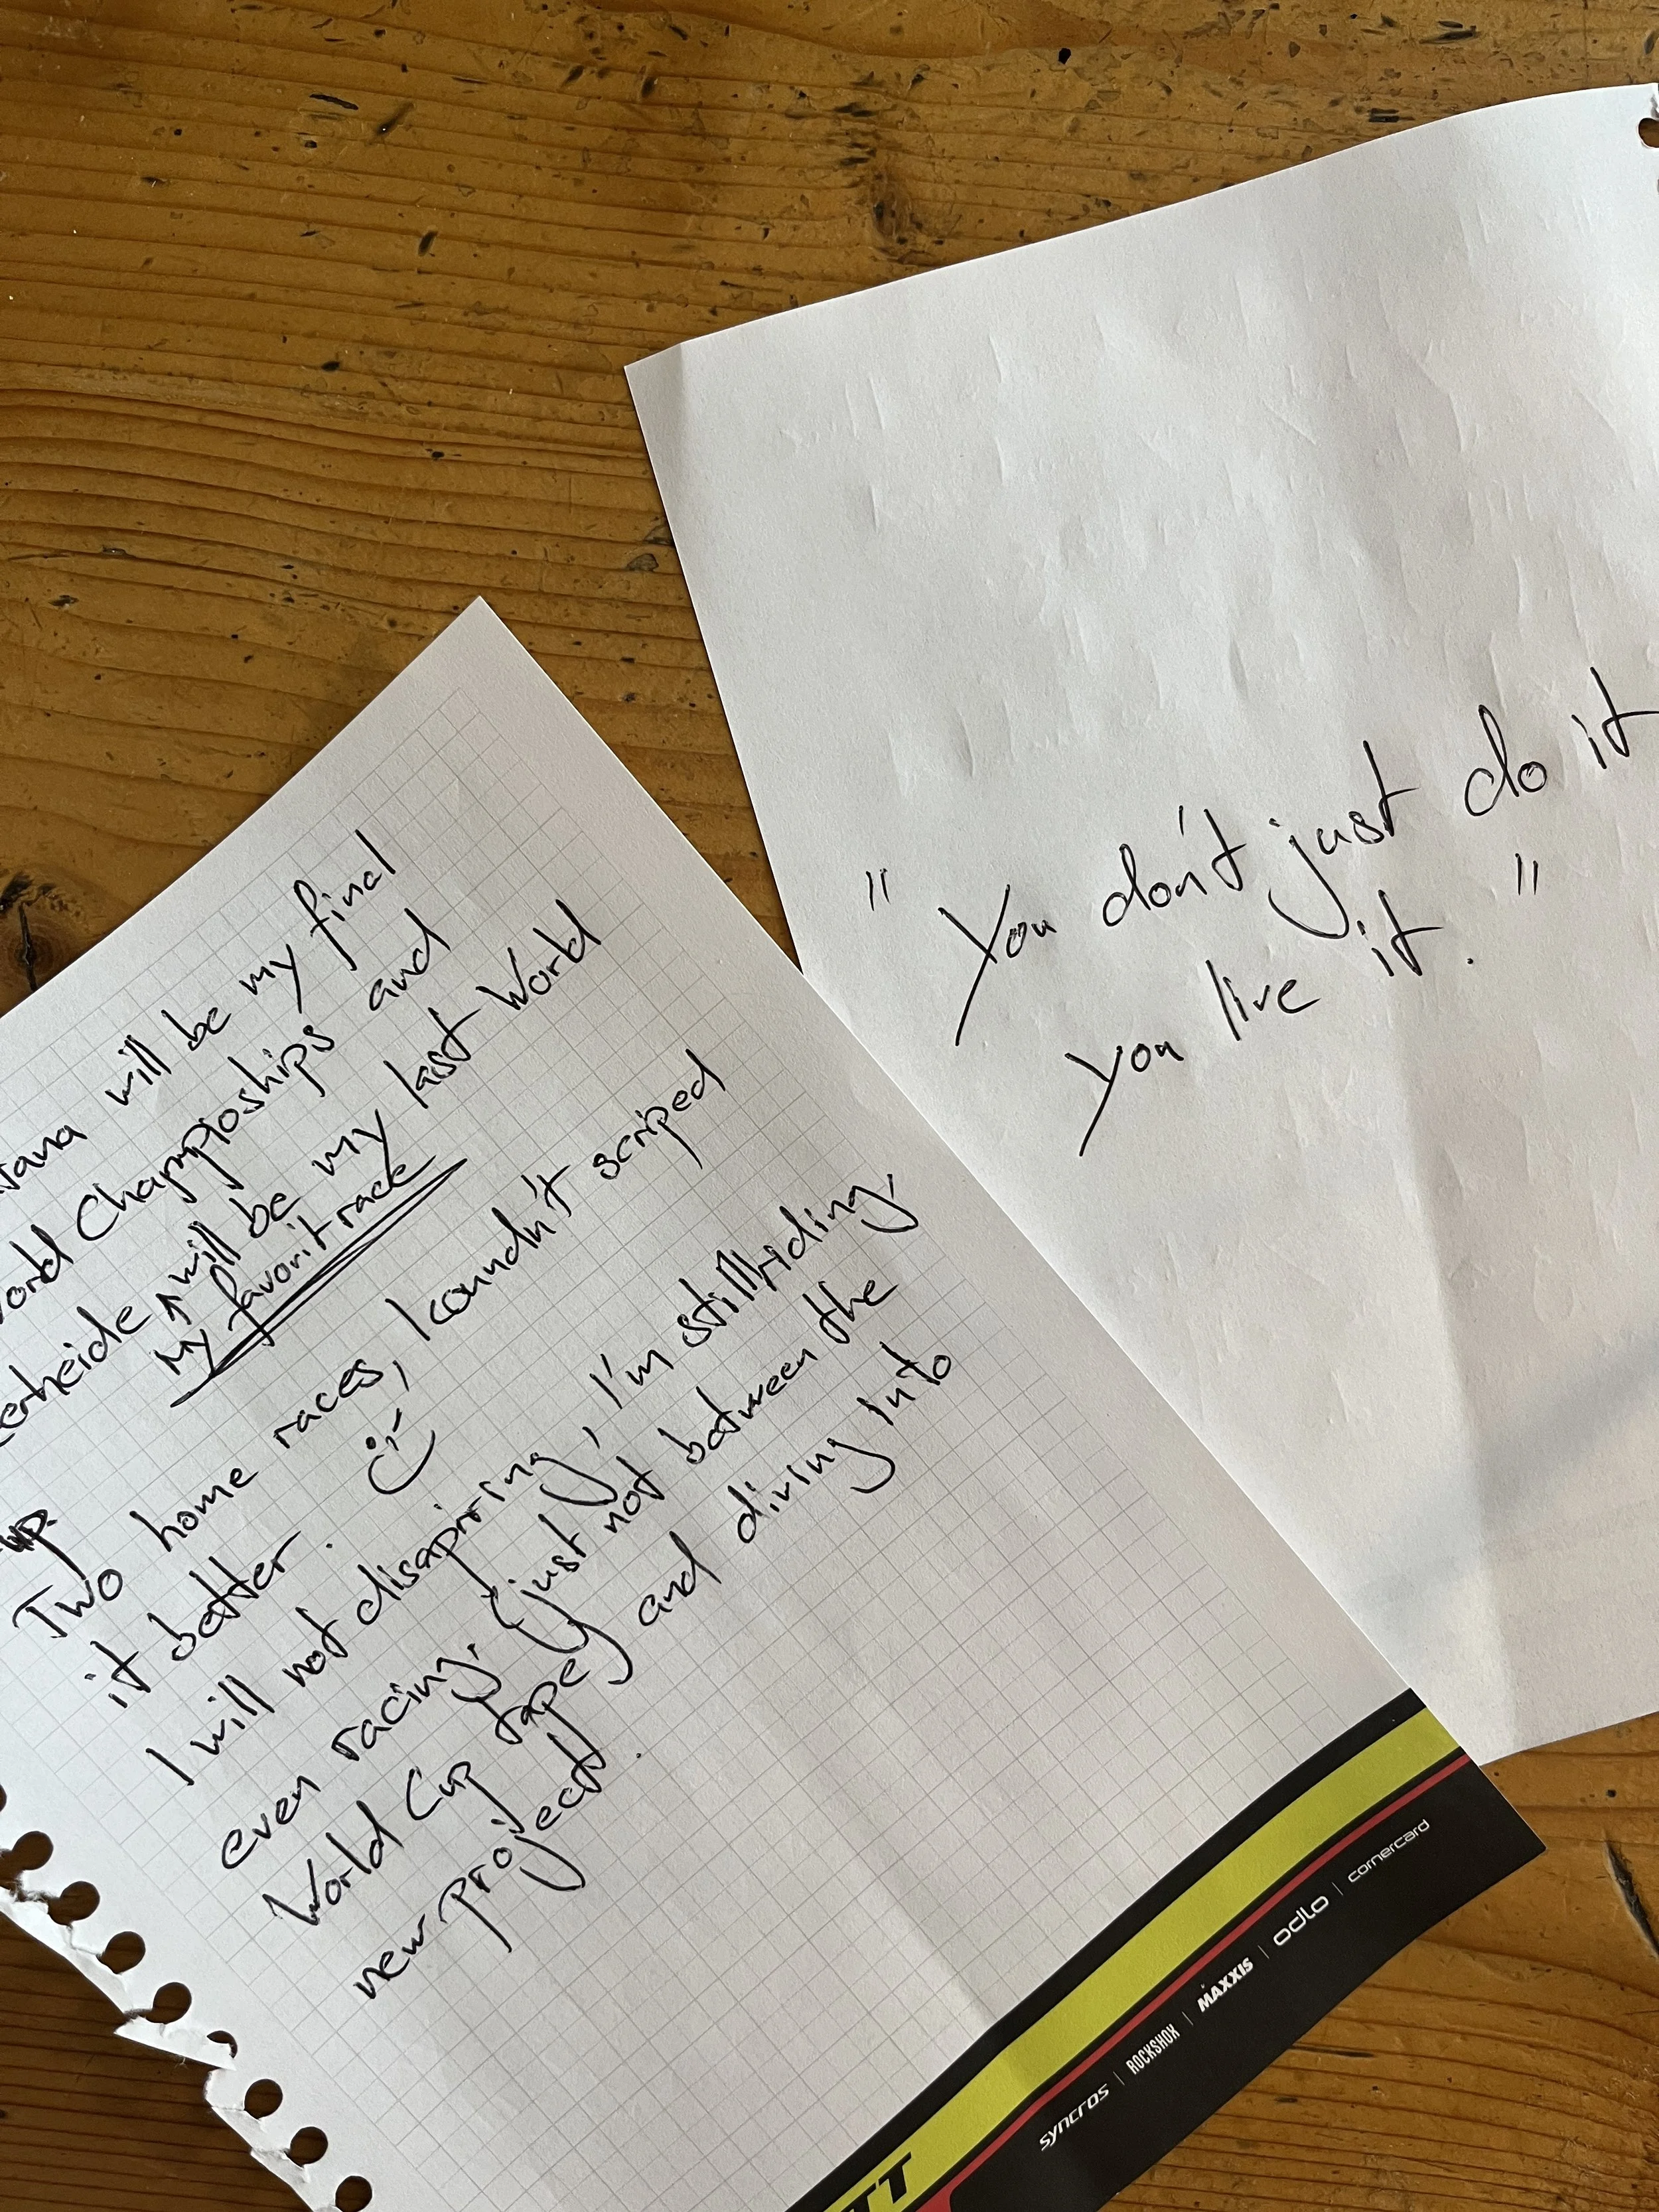 will be my final
World Champioships and
will be my last World
My favorit race
up.
Two home races, I coundn't scriped
it better.
I will not disapiring, I'm still riding,
even racing, (just not between the
World Cup tape) and diving into
new project.
" You don't just do it
you live it. "
TT
syncros | ROCKSHOX | MAXXIS | odlo | cornercard